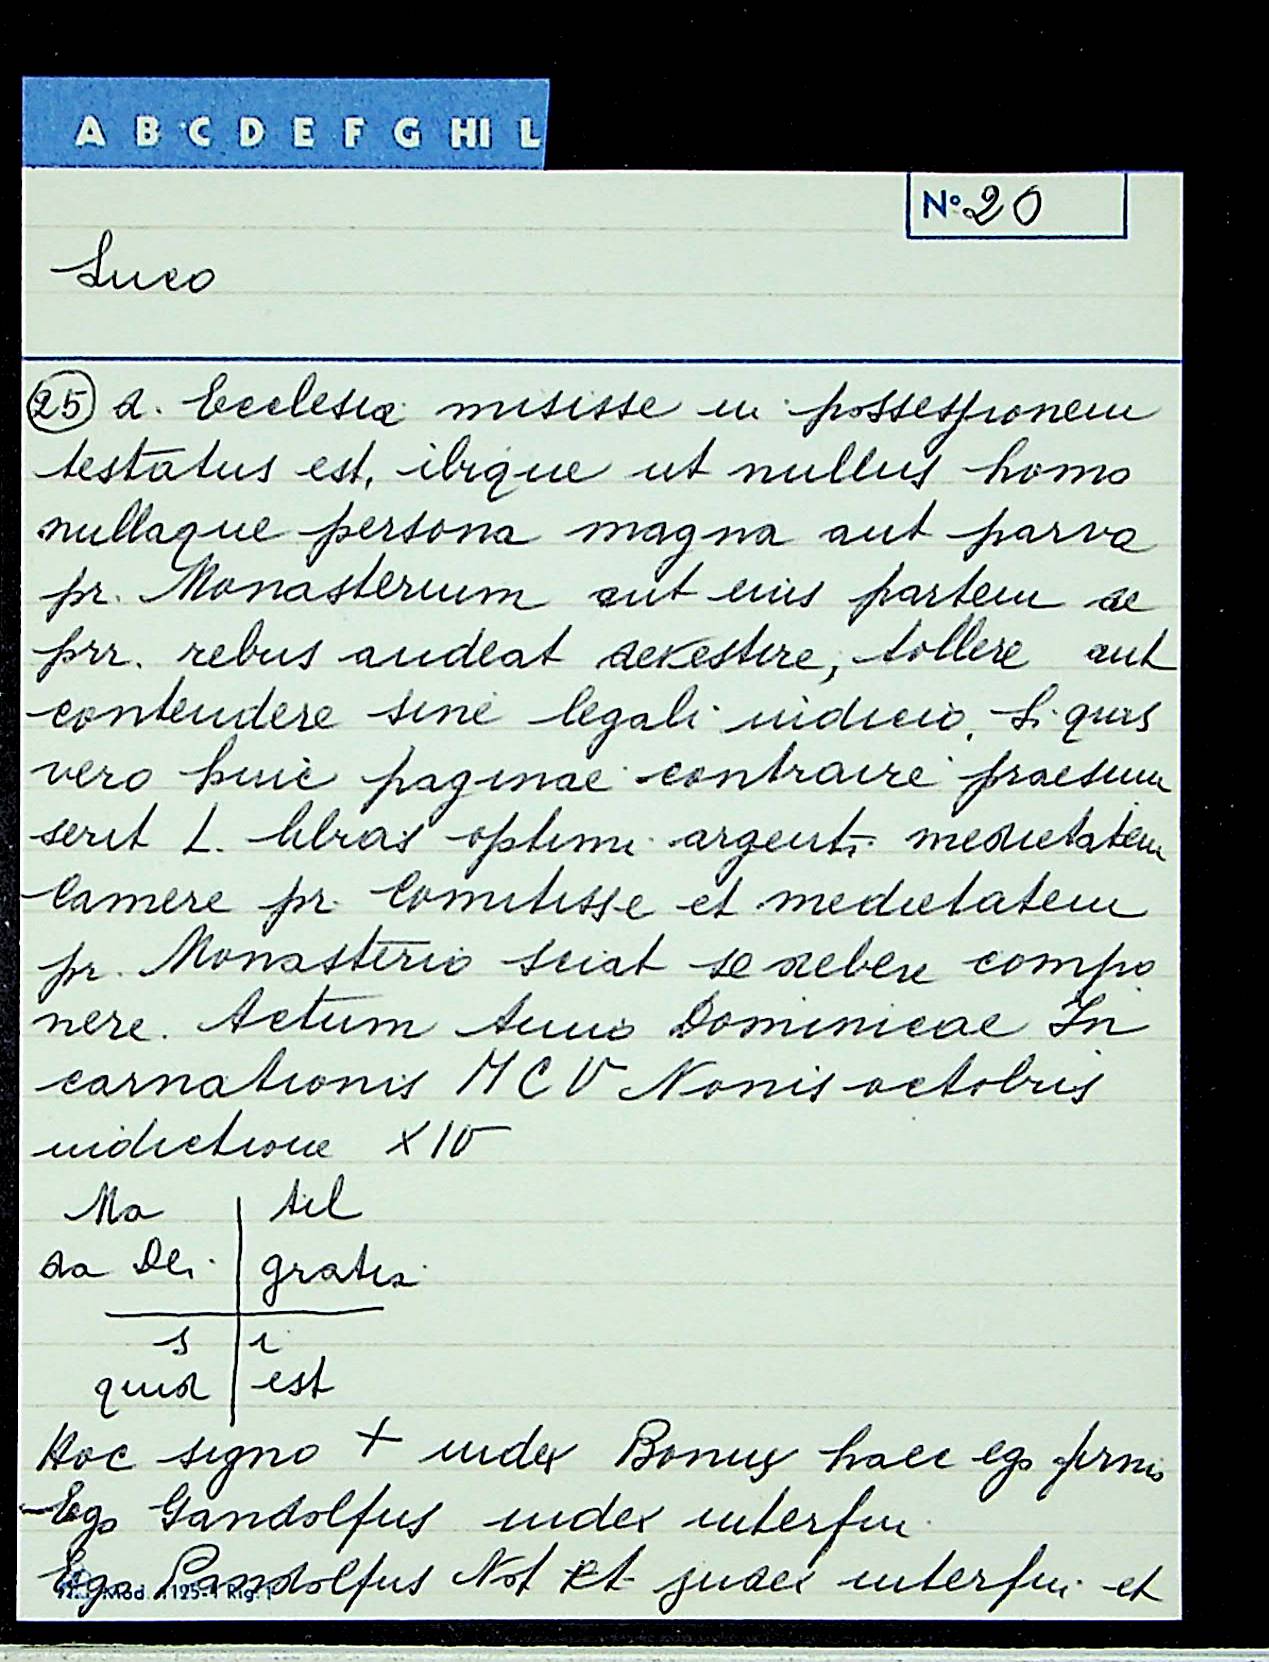 A B C D E F G HI L
N° 20
Luco
25 d. Ecclesia misisse in possessionem
testatus est, ibique ut nullus homo
nullaque persona magna aut parva
pr. Monasterium aut eius partem de
prr. rebus audeat devestire, tollere aut
contendere sine legali iudicio. Si quis
vero huic paginae contraire praesum
serit L. libras optimi argenti medietatem
Camere pr. Comitisse et medietatem
pr. Monasterio sciat se debere compo
nere. Actum Anno Dominicae In
carnationis MCV Nonis octobris
indictione XIV
Ma | til
da Dei | gratia
s | i
quid | est
Hoc signo + iudex Bonus haec ego firmo
Ego Gandolfus iudex interfui
Ego Pandolfus Not et judex interfui et
Mod. 1125-1 Rig. 1